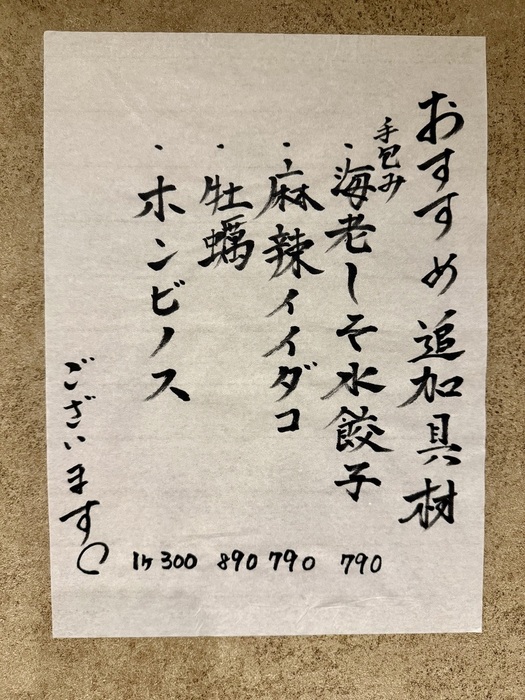 おすすめ追加具材
手包み
・海老しそ水餃子 790
・麻辣イイダコ 790
・牡蠣 890
・ホンビノス 1ヶ300
ございます。